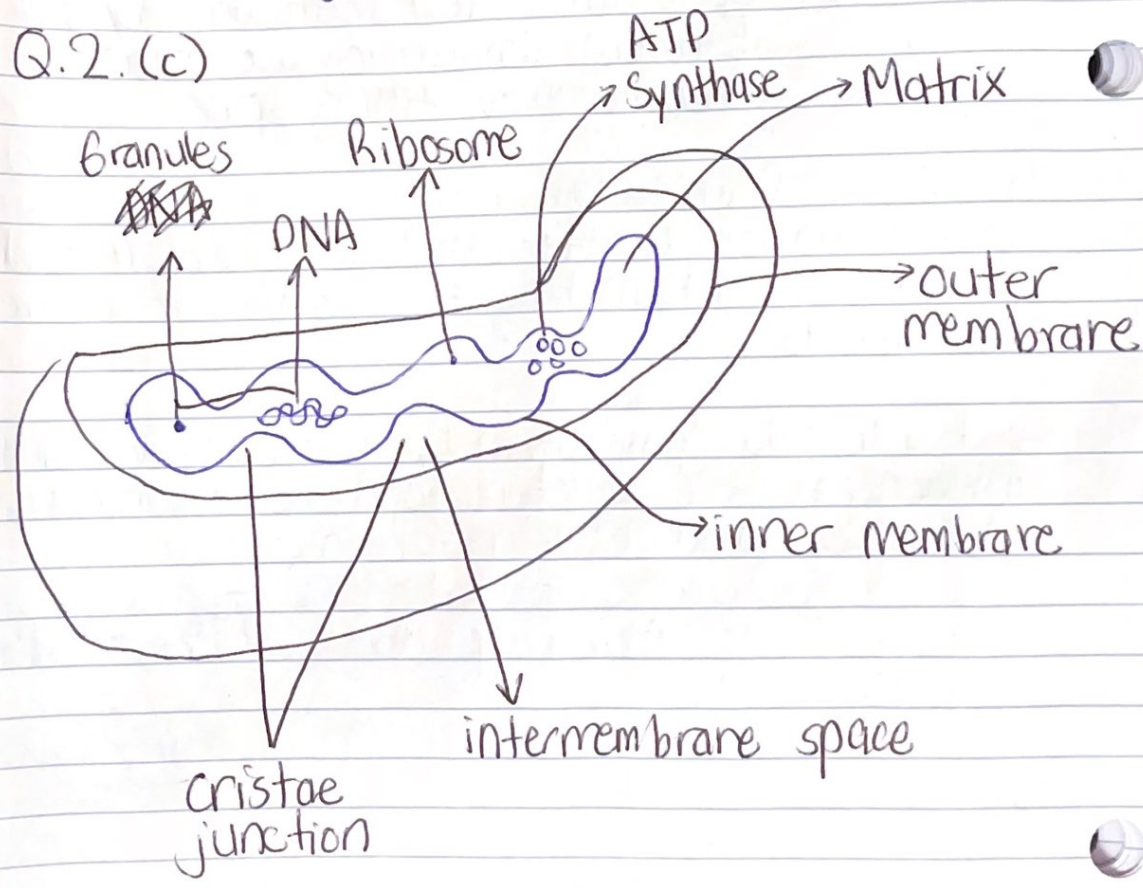 Q.2.(c)
ATP
Synthase
Matrix
Granules
Ribosome
DNA
outer
membrane
inner membrane
intermembrane space
cristae
junction